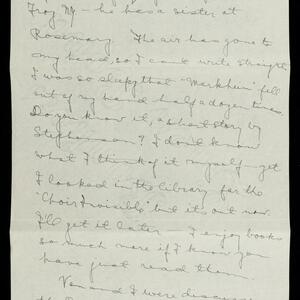 Troy NY – he has a sister at
Rosemary The air has gone to
my head, so I can't write straight
I was so sleepy that "Markheim" fell
out of my hand half a dozen times.
Do you know it, a short story by
Stephenson? I don't know
what I think of it myself – yet
I looked in the library for the
"Choir Invisible" but its out now.
I'll get it later – I enjoy books
so much more if I know you
have just read them
Van and I were discussing